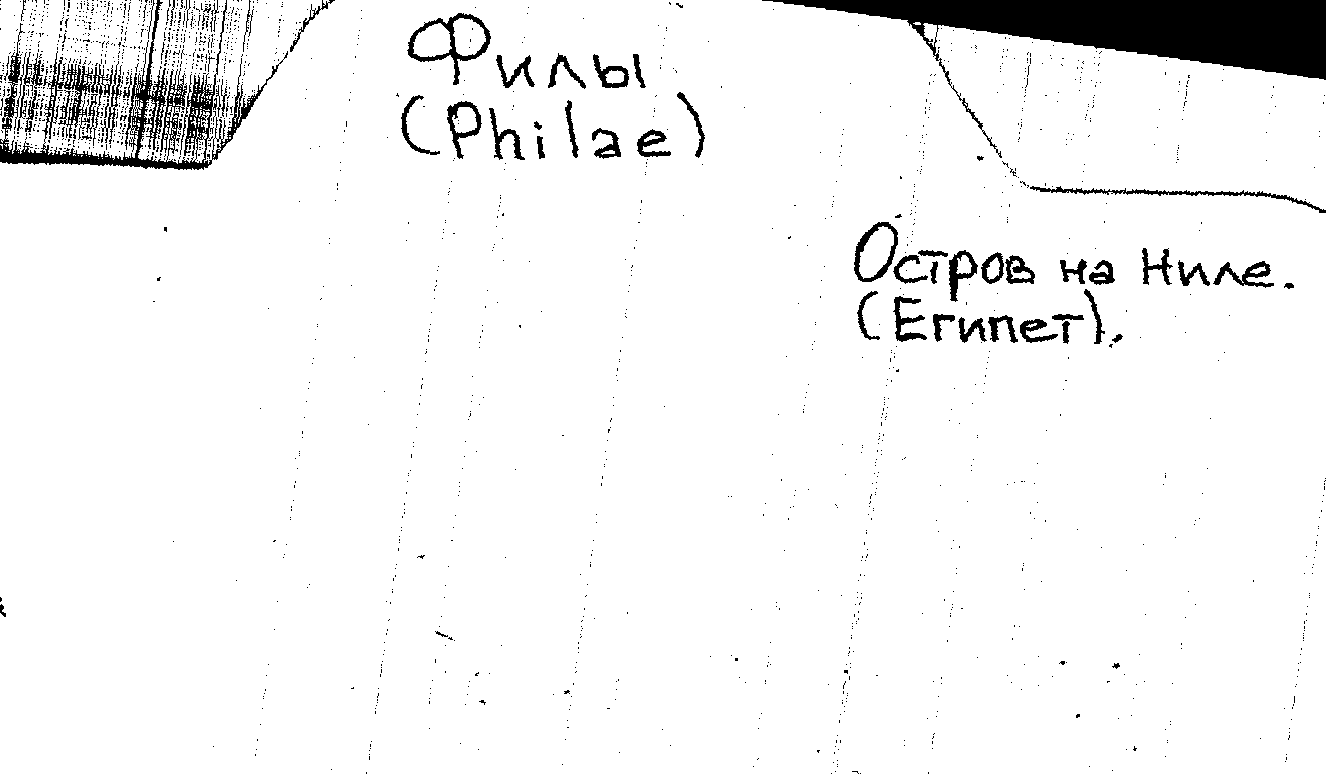 Филы
(Philae)
Остров на Ниле.
(Египет).